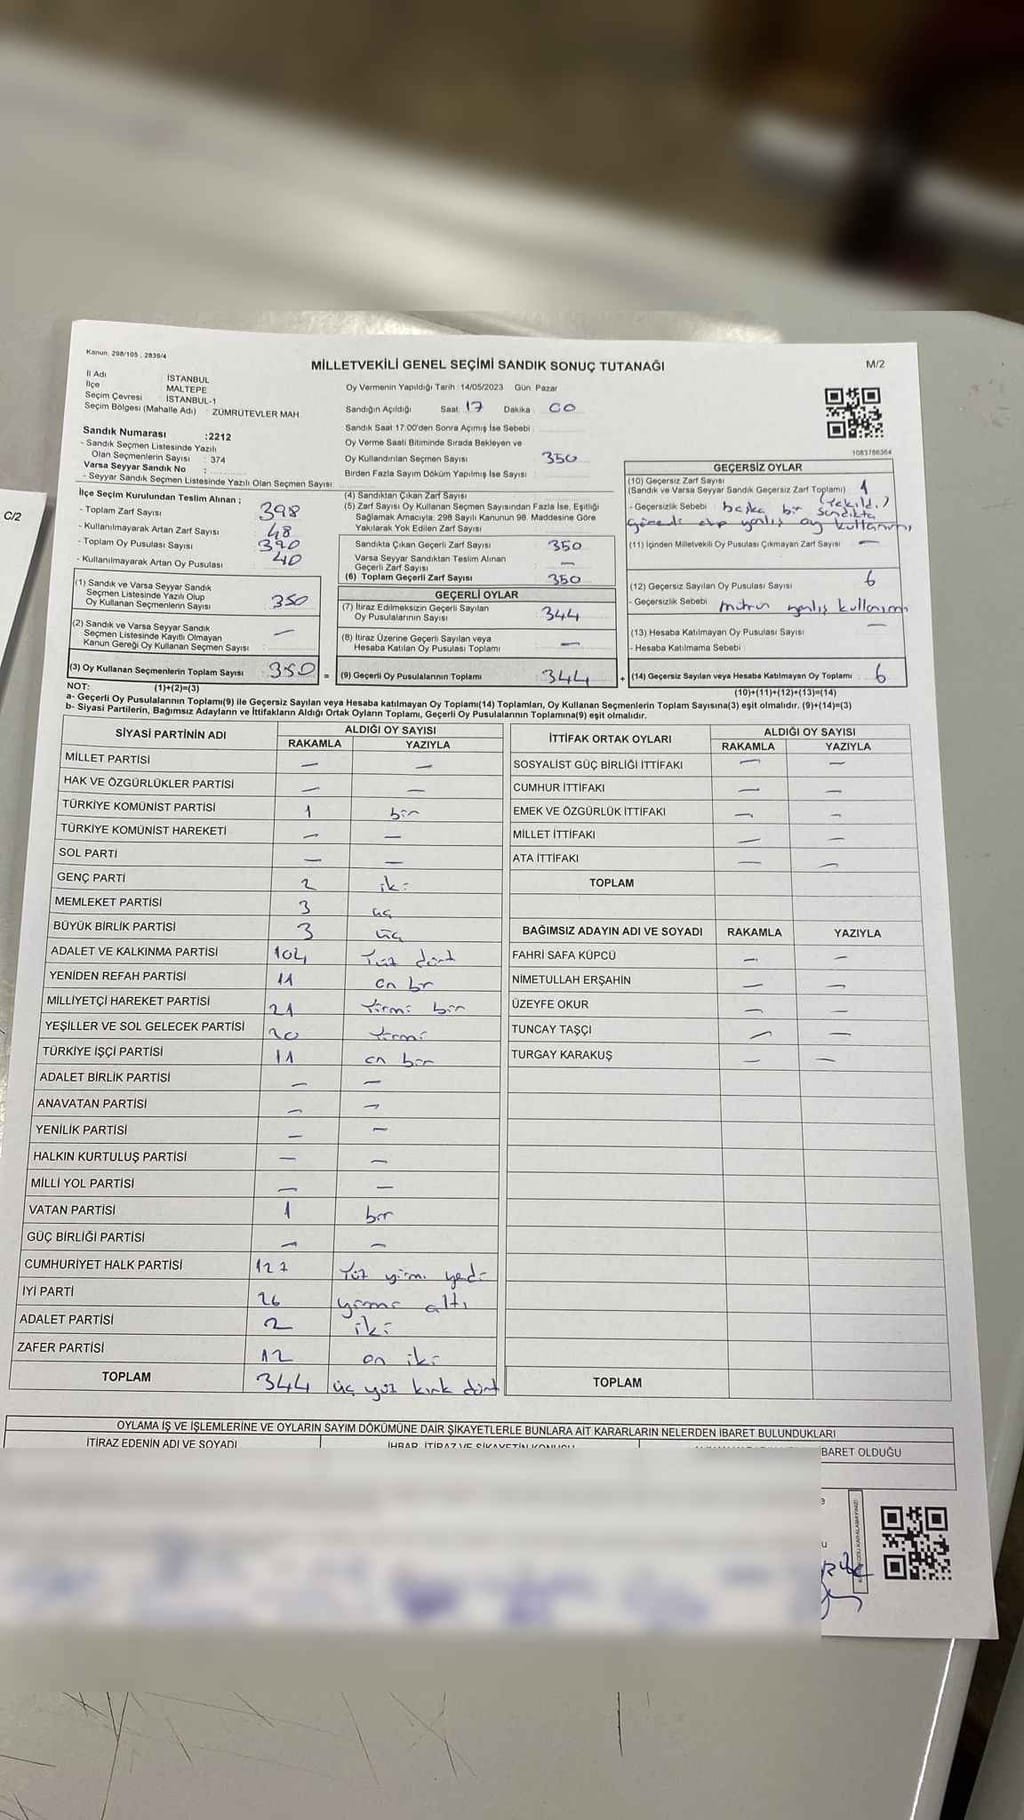 Kanun: 298/105 , 2839/4
MİLLETVEKİLİ GENEL SEÇİMİ SANDIK SONUÇ TUTANAĞI
M/2
İl Adı İSTANBUL
İlçe MALTEPE
Seçim Çevresi İSTANBUL-1
Seçim Bölgesi (Mahalle Adı) : ZÜMRÜTEVLER MAH.
Oy Vermenin Yapıldığı Tarih : 14/05/2023 Gün Pazar
Sandığın Açıldığı Saat 17 Dakika 00
Sandık Saat 17:00'den Sonra Açılmış İse Sebebi
Oy Verme Saati Bitiminde Sırada Bekleyen ve
Oy Kullandırılan Seçmen Sayısı 350
Birden Fazla Sayım Döküm Yapılmış İse Sayısı
Sandık Numarası :2212
- Sandık Seçmen Listesinde Yazılı
Olan Seçmenlerin Sayısı : 374
Varsa Seyyar Sandık No :
- Seyyar Sandık Seçmen Listesinde Yazılı Olan Seçmen Sayısı
1083766364
C/2
İlçe Seçim Kurulundan Teslim Alınan ;
- Toplam Zarf Sayısı 398
- Kullanılmayarak Artan Zarf Sayısı 48
- Toplam Oy Pusulası Sayısı 390
- Kullanılmayarak Artan Oy Pusulası 40
(1) Sandık ve Varsa Seyyar Sandık
Seçmen Listesinde Yazılı Olup
Oy Kullanan Seçmenlerin Sayısı 350
(2) Sandık ve Varsa Seyyar Sandık
Seçmen Listesinde Kayıtlı Olmayan
Kanun Gereği Oy Kullanan Seçmen Sayısı —
(3) Oy Kullanan Seçmenlerin Toplam Sayısı 350 =
(4) Sandıktan Çıkan Zarf Sayısı
(5) Zarf Sayısı Oy Kullanan Seçmen Sayısından Fazla İse, Eşitliği
Sağlamak Amacıyla, 298 Sayılı Kanunun 98. Maddesine Göre
Yakılarak Yok Edilen Zarf Sayısı
Sandıkta Çıkan Geçerli Zarf Sayısı 350
Varsa Seyyar Sandıktan Teslim Alınan
Geçerli Zarf Sayısı —
(6) Toplam Geçerli Zarf Sayısı 350
GEÇERLİ OYLAR
(7) İtiraz Edilmeksizin Geçerli Sayılan
Oy Pusulalarının Sayısı 344
(8) İtiraz Üzerine Geçerli Sayılan veya
Hesaba Katılan Oy Pusulası Toplamı —
(9) Geçerli Oy Pusulalarının Toplamı 344 +
GEÇERSİZ OYLAR
(10) Geçersiz Zarf Sayısı
(Sandık ve Varsa Seyyar Sandık Geçersiz Zarf Toplamı) 1
- Geçersizlik Sebebi başka bir sandıkta
yanlış oy kullanımı
(11) İçinden Milletvekili Oy Pusulası Çıkmayan Zarf Sayısı —
(12) Geçersiz Sayılan Oy Pusulası Sayısı 6
- Geçersizlik Sebebi mührün yanlış kullanımı
(13) Hesaba Katılmayan Oy Pusulası Sayısı —
- Hesaba Katılmama Sebebi
(14) Geçersiz Sayılan veya Hesaba Katılmayan Oy Toplamı 6
NOT: (1)+(2)=(3)
(10)+(11)+(12)+(13)=(14)
a- Geçerli Oy Pusulalarının Toplamı(9) ile Geçersiz Sayılan veya Hesaba Katılmayan Oy Toplamı(14) Toplamları, Oy Kullanan Seçmenlerin Toplam Sayısına(3) eşit olmalıdır. (9)+(14)=(3)
b- Siyasi Partilerin, Bağımsız Adayların ve İttifakların Aldığı Ortak Oyların Toplamı, Geçerli Oy Pusulalarının Toplamına(9) eşit olmalıdır.
SİYASİ PARTİNİN ADI ALDIĞI OY SAYISI
RAKAMLA YAZIYLA
MİLLET PARTİSİ — —
HAK VE ÖZGÜRLÜKLER PARTİSİ — —
TÜRKİYE KOMÜNİST PARTİSİ 1 bir
TÜRKİYE KOMÜNİST HAREKETİ — —
SOL PARTİ — —
GENÇ PARTİ 2 iki
MEMLEKET PARTİSİ 3 üç
BÜYÜK BİRLİK PARTİSİ 3 üç
ADALET VE KALKINMA PARTİSİ 104 Yüz dört
YENİDEN REFAH PARTİSİ 11 on bir
MİLLİYETÇİ HAREKET PARTİSİ 21 Yirmi bir
YEŞİLLER VE SOL GELECEK PARTİSİ 20 Yirmi
TÜRKİYE İŞÇİ PARTİSİ 11 on bir
ADALET BİRLİK PARTİSİ — —
ANAVATAN PARTİSİ — —
YENİLİK PARTİSİ — —
HALKIN KURTULUŞ PARTİSİ — —
MİLLİ YOL PARTİSİ — —
VATAN PARTİSİ 1 bir
GÜÇ BİRLİĞİ PARTİSİ — —
CUMHURİYET HALK PARTİSİ 127 Yüz yirmi yedi
İYİ PARTİ 26 yirmi altı
ADALET PARTİSİ 2 iki
ZAFER PARTİSİ 12 on iki
TOPLAM 344 üç yüz kırk dört
İTTİFAK ORTAK OYLARI ALDIĞI OY SAYISI
RAKAMLA YAZIYLA
SOSYALİST GÜÇ BİRLİĞİ İTTİFAKI — —
CUMHUR İTTİFAKI — —
EMEK VE ÖZGÜRLÜK İTTİFAKI — —
MİLLET İTTİFAKI — —
ATA İTTİFAKI — —
TOPLAM
BAĞIMSIZ ADAYIN ADI VE SOYADI RAKAMLA YAZIYLA
FAHRİ SAFA KÜPCÜ — —
NİMETULLAH ERŞAHİN — —
ÜZEYFE OKUR — —
TUNCAY TAŞÇI — —
TURGAY KARAKUŞ — —
TOPLAM
OYLAMA İŞ VE İŞLEMLERİNE VE OYLARIN SAYIM DÖKÜMÜNE DAİR ŞİKAYETLERLE BUNLARA AİT KARARLARIN NELERDEN İBARET BULUNDUKLARI
İTİRAZ EDENİN ADI VE SOYADI İHBAR, İTİRAZ VE ŞİKAYETİN KONUSU BARET OLDUĞU